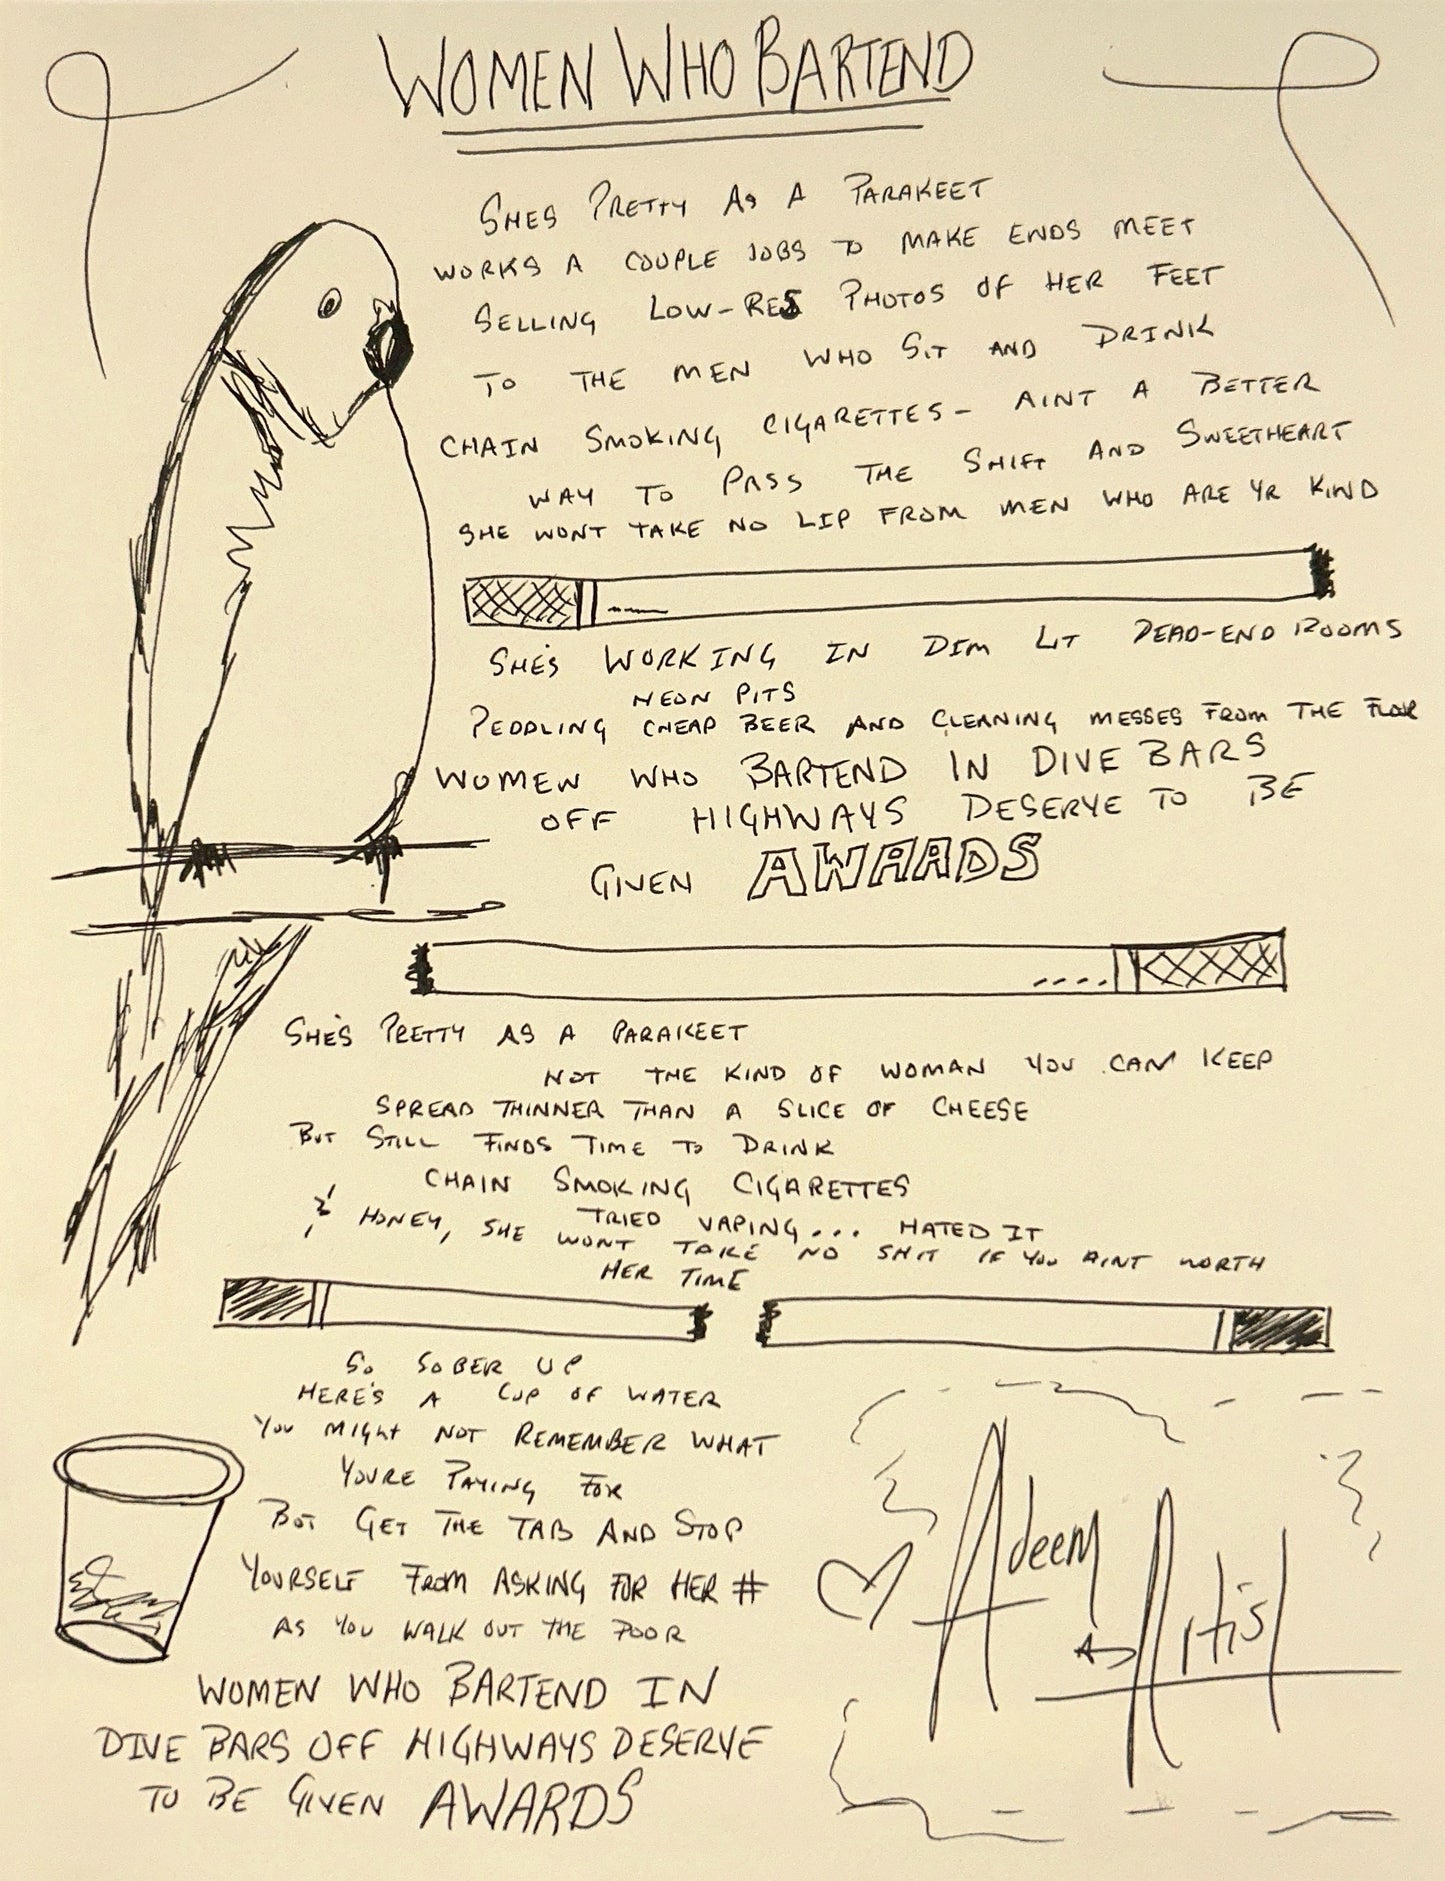 WOMEN WHO BARTEND
SHES PRETTY AS A PARAKEET
WORKS A COUPLE JOBS TO MAKE ENDS MEET
SELLING LOW-RES PHOTOS OF HER FEET
TO THE MEN WHO SIT AND DRINK
CHAIN SMOKING CIGARETTES- AINT A BETTER
WAY TO PASS THE SHIFT AND SWEETHEART
SHE WONT TAKE NO LIP FROM MEN WHO ARE YR KIND
SHE'S WORKING IN DIM LIT DEAD-END ROOMS
NEON PITS
PEDDLING CHEAP BEER AND CLEANING MESSES FROM THE FLOOR
WOMEN WHO BARTEND IN DIVE BARS
OFF HIGHWAYS DESERVE TO BE
GIVEN AWARDS
SHE'S PRETTY AS A PARAKEET
NOT THE KIND OF WOMAN YOU CAN KEEP
SPREAD THINNER THAN A SLICE OF CHEESE
BUT STILL FINDS TIME TO DRINK
CHAIN SMOKING CIGARETTES
TRIED VAPING... HATED IT
& HONEY, SHE WONT TAKE NO SHIT IF YOU AINT WORTH
HER TIME
SO SOBER UP
HERE'S A CUP OF WATER
YOU MIGHT NOT REMEMBER WHAT
YOURE PAYING FOR
BUT GET THE TAB AND STOP
YOURSELF FROM ASKING FOR HER #
AS YOU WALK OUT THE DOOR
WOMEN WHO BARTEND IN
DIVE BARS OFF HIGHWAYS DESERVE
TO BE GIVEN AWARDS
Adeem
Artist